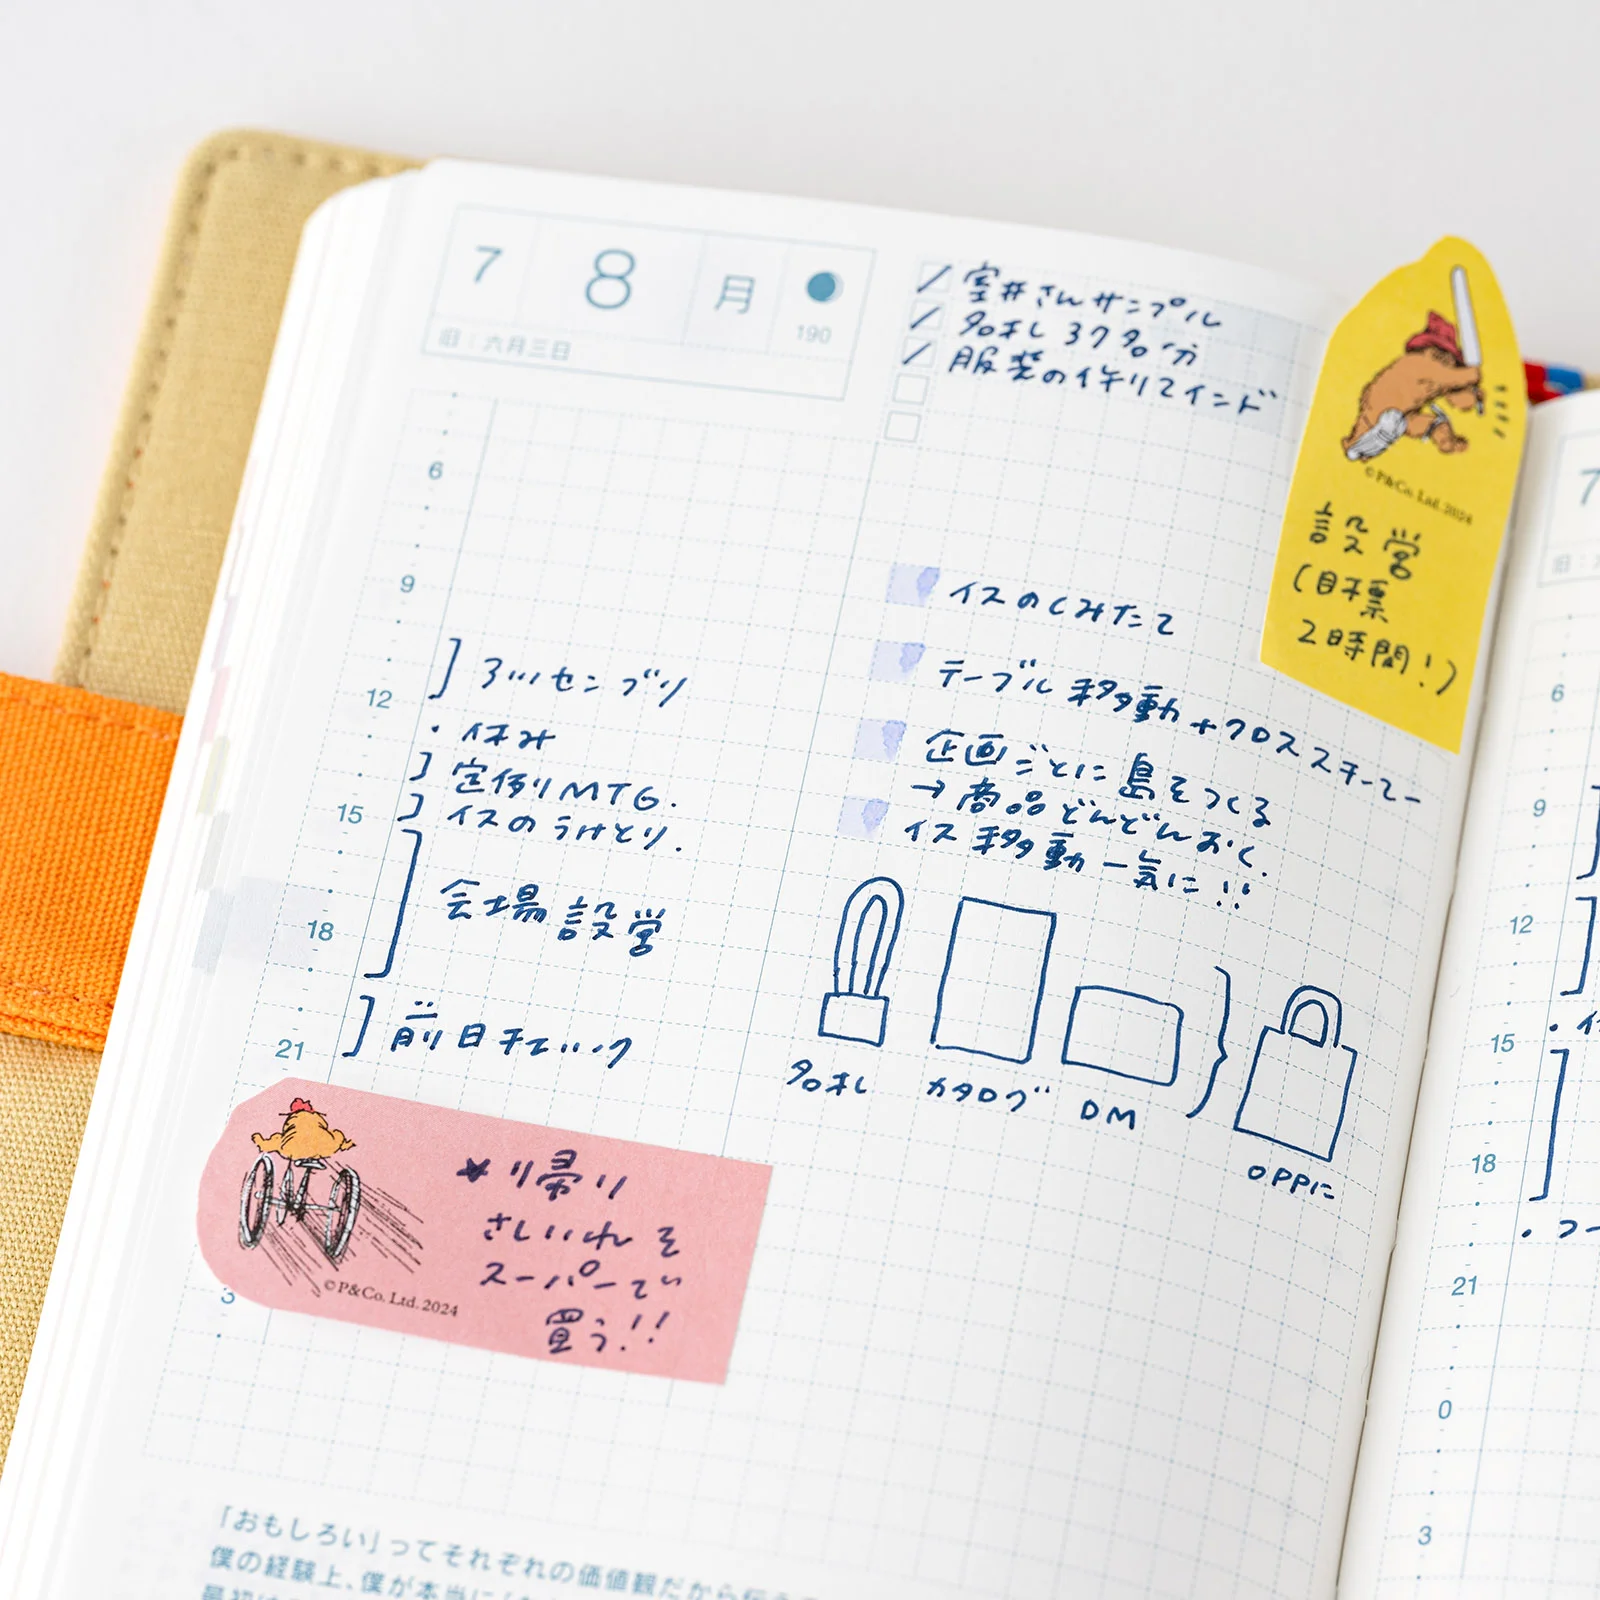 7 8 月
190
旧：六月三日
室井さんサンプル
名札 37名分
服装のリマインド
6
9
12
15
18
21
3
ミッセンブリ
・休み
定例MTG.
イスのうけとり.
会場設営
前日チェック
イスのくみたて
テーブル移動+クロス
企画ごとに島をつくる
→商品どんどんおく.
イス移動 一気に!!
名札 カタログ DM
OPPに
©P&Co. Ltd. 2024
設営
(目標
2時間!)
©P&Co. Ltd. 2024
帰り
さしいれを
スーパーで
買う!!
「おもしろい」ってそれぞれの価値観だから伝
僕の経験上、僕が本当に
7
6
9
12
15
18
21
0
3